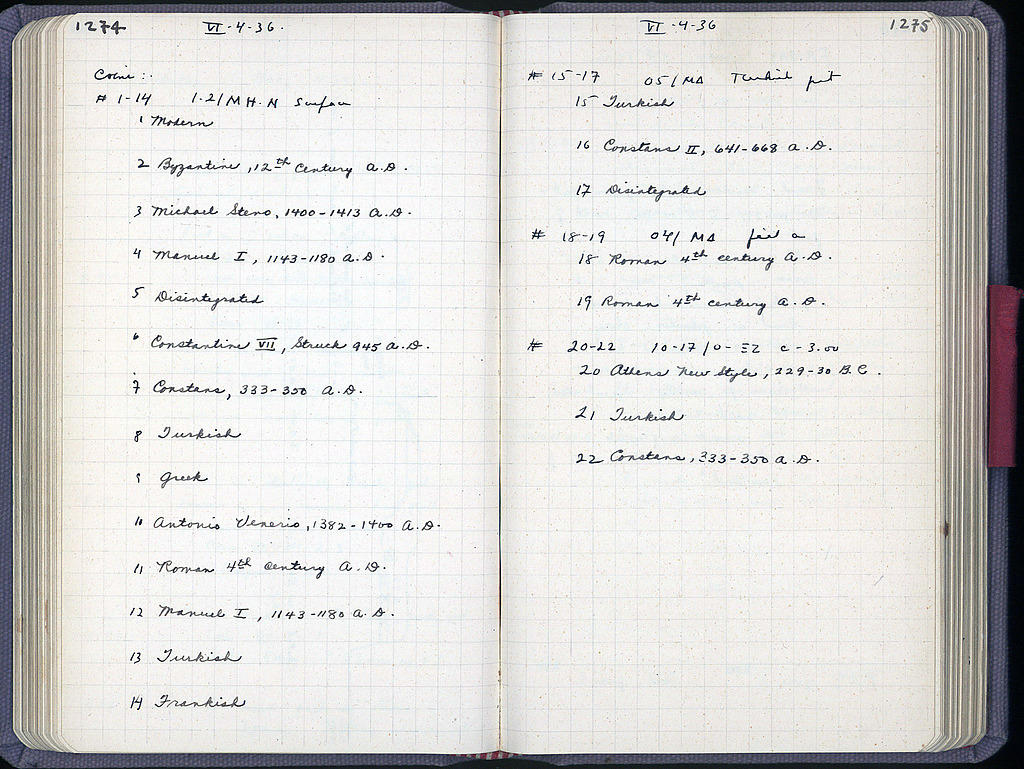 1274
VI-4-36.
Coins:.
# 1-14 1.2/MH-N Surface
1 Modern
2 Byzantine, 12th Century A.D.
3 Michael Steno, 1400-1413 A.D.
4 Manuel I, 1143-1180 A.D.
5 Disintegrated
6 Constantine VII, Struck 945 A.D.
7 Constans, 333-350 A.D.
8 Turkish
9 Greek
10 Antonio Venerio, 1382-1400 A.D.
11 Roman 4th Century A.D.
12 Manuel I, 1143-1180 A.D.
13 Turkish
14 Frankish
VI-4-36
1275
# 15-17 05/MΔ Turkish pit
15 Turkish
16 Constans II, 641-668 A.D.
17 Disintegrated
# 18-19 04/MΔ
18 Roman 4th century A.D.
19 Roman 4th century A.D.
# 20-22 10-17/0-ΞZ c-3.00
20 Athens New Style, 229-30 B.C.
21 Turkish
22 Constans, 333-350 A.D.